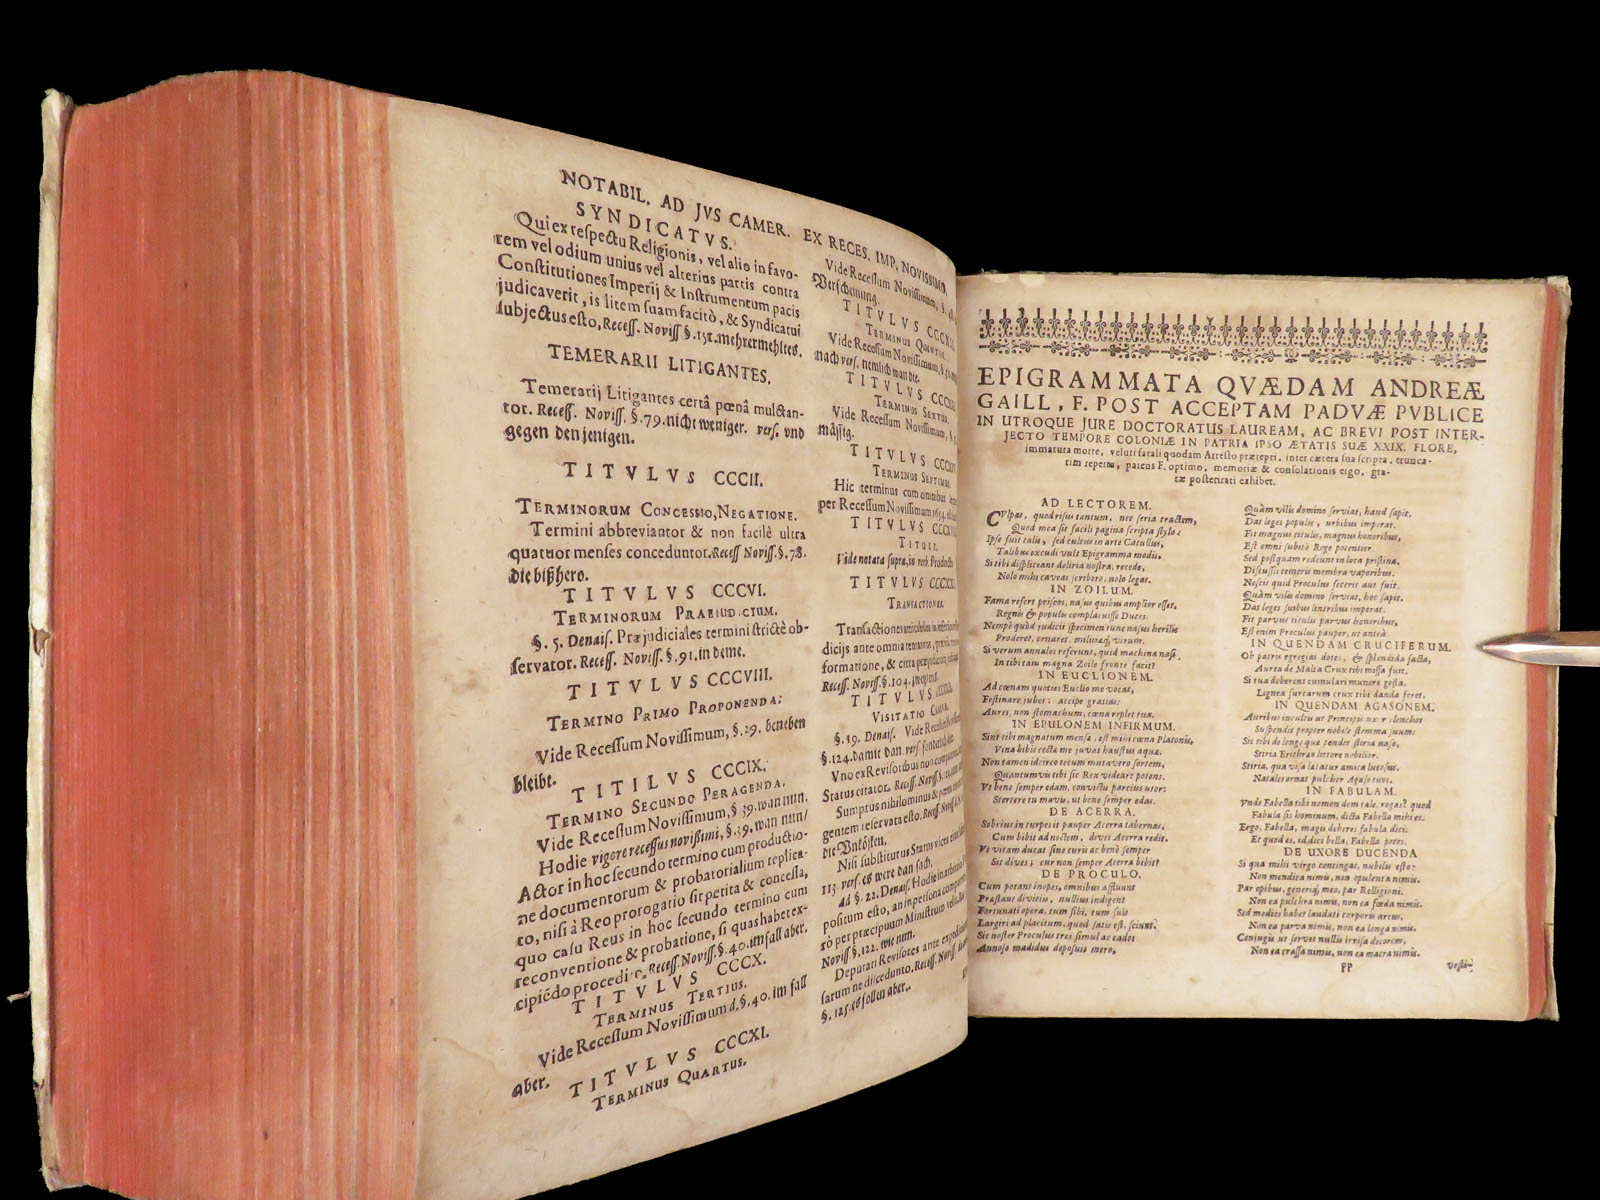 NOTABIL. AD JVS CAMER. EX RECES. IMP. NOVISSIMO.
SYNDICATVS.
Qui ex reſpectu Religionis, vel alio in favo-
rem vel odium unius vel alterius partis contra
Conſtitutiones Imperij & Inſtrumentum pacis
judicaverit, is litem ſuam facitò, & Syndicatui
ſubjectus eſto, Receſſ. Noviſſ. §. 151. mehrermeltes.
TEMERARII LITIGANTES.
Temerarij Litigantes certâ pœnâ mulctan-
tor. Receſſ. Noviſſ. §. 79. nicht weniger. verſ. und
gegen den jenigen.
TITVLVS CCCII.
TERMINORUM CONCESSIO, NEGATIONE.
Termini abbreviantor & non facilè ultra
quatuor menſes conceduntor. Receſſ Noviſſ. §. 78.
die bißhero.
TITVLVS CCCVI.
TERMINORUM PRAEIUDICIUM.
§. 5. Denaiſ. Præjudiciales termini ſtrictè ob-
ſervator. Receſſ. Noviſſ. §. 91. in deme.
TITVLVS CCCVIII.
TERMINO PRIMO PROPONENDA:
Vide Receſſum Noviſſimum, §. 29. beneben
bleibt.
TITILVS CCCIX.
TERMINO SECUNDO PERAGENDA.
Vide Receſſum Noviſſimum, §. 39. wan nun.
Hodie vigore receſſus noviſſimi, §. 39. wan nun/
Actor in hoc ſecundo termino cum productio-
ne documentorum & probatorialium replica-
to, niſi â Reo prorogatio ſit petita & conceſſa,
quo caſu Reus in hoc ſecundo termino cum
reconventione & probatione, ſi quas habet ex-
cipiēdo procedito, Receſſ. Noviſſ. §. 40. im fall aber.
TITVLVS CCCX.
TERMINUS TERTIUS.
Vide Receſſum Noviſſimum d. §. 40. im fall
aber.
TITVLVS CCCXI.
TERMINUS QUARTUS.
Vide Receſſum Noviſſimum, §.
Verſcheinung.
TITVLVS
TERMINUS QUINTUS.
Vide Receſſum Noviſſimum, §.
nach verſ. nemlich wan die.
TITVLVS
TERMINUS SEXTUS.
Vide Receſſum Noviſſimum, §.
mäſſig.
TITVLVS
TERMINUS SEPTIMUS.
Hic terminus cum omnibus
per Receſſum Noviſſimum 1654.
TITVLVS
TITULI.
Vide notata ſupra, in verb. Producta
TITVLVS
TRANSACTIONES.
Transactiones amicabiles in inferioribus
dicijs ante omnia tentantor,
formatione, & citra præjudicium
Receſſ. Noviſſ. §. 104.
TITVLVS
VISITATIO
§. 19. Denaiſ. Vide Receſſum
§. 124. damit dan verſ
Vno ex Reviſoribus non
Status citator. Receſſ. Noviſſ. §.
Sumptus nihilominus &
gentem reſervata eſto. Receſſ. Noviſſ.
die Vnköſten.
Niſi ſubſtitutus Status vices
113. verſ. es were dan ſach.
Ad §. 22. Denaiſ. Hodie
poſitum eſto, an in perſona
rò per præcipuum Miniſtrum
Noviſſ. §. 122. wie nun.
Deputati Reviſores ante
ſarum ne diſcedunto, Receſſ. Noviſſ.
§. 125. es ſollen aber.
EPIGRAMMATA QVÆDAM ANDREÆ
GAILL, F. POST ACCEPTAM PADVÆ PVBLICE
IN UTROQUE JURE DOCTORATUS LAUREAM, AC BREVI POST INTER-
JECTO TEMPORE COLONIÆ IN PATRIA IPSO ÆTATIS SUÆ XXIX. FLORE,
immatura morte, veluti fatali quodam Arreſto præreptI, inter cætera ſua ſcripta, trunca-
tim reperta, patens F. optimo, memoriæ & conſolationis ergo, gra-
tæ poſteritati exhibet.
AD LECTOREM.
CVlpas, quod riſus tantum, nec ſeria tractem,
Quod mea ſit facili pagina ſcripta ſtylo:
Ipſe fuit talis, ſed cultus in arte Catullus,
Talibus excudi vult Epigramma modis.
Si tibi diſpliceant deliria noſtra, recede,
Nolo mihi caveas ſcribere, nolo legas.
IN ZOILUM.
Fama refert priſcos, naſus quibus amplior eſſet,
Regnis & populis complacuiſſe Duces.
Nempè quòd judicii ſpecimen tunc naſus herilis
Proderet, ornaret, militiaq; virum.
Si verum annales referunt, quid machina naſi
In tibi tam magna Zoile fronte facit?
IN EUCLIONEM.
Ad cœnam quoties Euclio me vocas,
Feſtinare jubes: accipe gratias:
Aures, non ſtomachum, cœna replet tua.
IN EPULONEM INFIRMUM.
Sint tibi magnatum menſæ, eſt mihi cœna Platonis,
Vina bibis cocta me juvat hauſtus aquæ.
Non tamen idcirco tecum mutavero ſortem,
Quantumvis tibi ſic Rex videare potens.
Vt bene ſemper edam, convictu parcius utor:
Stertere tu mavis, ut bene ſemper edas.
DE ACERRA.
Sobrius in turpes it pauper Acerra tabernas,
Cum bibit ad noctem, dives Acerra redit.
Vt vitam ducat ſine curis ac benè ſemper
Sit dives; cur non ſemper Acerra bibit?
DE PROCULO.
Cum potant inopes, omnibus affluunt
Præſtant divitiis, nullius indigent
Fortunati opera, tum ſibi, tum ſuis
Largiri ad placitum, quod ſatis eſt, ſciunt.
Sic noſter Proculus tres ſimul ac cados
Annoſo madidus depoſuit mero,
Quàm vilis domino ſerviat, haud ſapit.
Dat leges populis, urbibus imperat.
Fit magnus titulis, magnus honoribus,
Eſt omni ſubitò Rege potentior.
Sed poſtquam redeunt in loca priſtina,
Diſcuſſis temeris membra vaporibus.
Neſcit quid Proculus fecerit aut fuit.
Quàm vilis domino ſerviat, hoc ſapit.
Dat leges ſuibus lintribus imperat.
Fit parvus titulis parvus honoribus,
Eſt enim Proculus pauper, ut anteà.
IN QUENDAM CRUCIFERUM.
Ob patris egregias dotes, & ſplendida facta,
Aurea de Malta Crux tibi miſſa fuit.
Si tua deberent cumulari munere geſta.
Lignea furcarum crux tibi danda foret.
IN QUENDAM AGASONEM.
Auribus incultis ut Principis
Suſpendit propter nobile ſtemma ſuum:
Sic tibi de longo quæ pendet ſteria naſo,
Stiria Erithræo littore nobilior.
Stiria, qua viſa lætatur amica lutoſos.
Natales ornas pulcher Agaſo tuos.
IN FABULAM.
Vnde Fabella tibi nomen dem tale, rogas? quod
Fabula ſis hominum, dicta Fabella mihi es.
Ergo, Fabella, magis deberes fabula dici:
Et quod es, id dici bella, Fabella, potes.
DE UXORE DUCENDA
Si qua mihi virgo contingat, nubilis eſto:
Non mendica nimis, non opulenta nimis.
Par opibus, generiq; meo, par Relligioni.
Non ea pulchra nimis, non ea fœda nimis.
Sed modios habet laudati corporis artus,
Non ea parva nimis, non ea longa nimis.
Conjugis ut ſervet nullis irriſa decorem,
Non ea craſſa nimis, non ea macra nimis.
PP
Veſti-